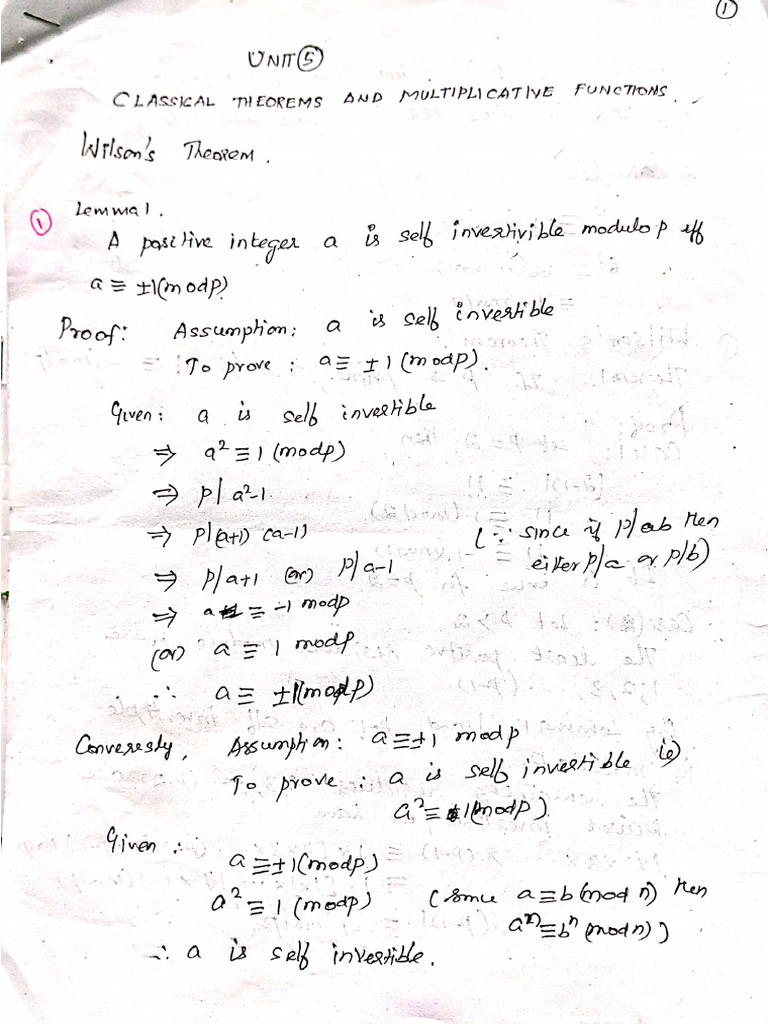 1
UNIT 5
CLASSICAL THEOREMS AND MULTIPLICATIVE FUNCTIONS.
Wilson's Theorem.
1 Lemma 1.
A positive integer a is self invertivible modulo p iff
a ≡ ±1(mod p)
Proof: Assumption: a is self invertible
To prove: a ≡ ±1 (mod p).
Given: a is self invertible
⇒ a² ≡ 1 (mod p)
⇒ p | a²-1
⇒ p|(a+1) (a-1) (∵ since if p/ab then
⇒ p/a+1 (or) p/a-1 either p/a or p/b)
⇒ a ≡ -1 mod p
(or) a ≡ 1 mod p
∴ a ≡ ±1(mod p)
Converesly, Assumption: a ≡ ±1 mod p
To prove: a is self invertible (ie)
a² ≡ 1(mod p)
Given:
a ≡ ±1(mod p)
a² ≡ 1 (mod p) (since a ≡ b (mod n) then
aⁿ ≡ bⁿ (mod n))
∴ a is self invertible.